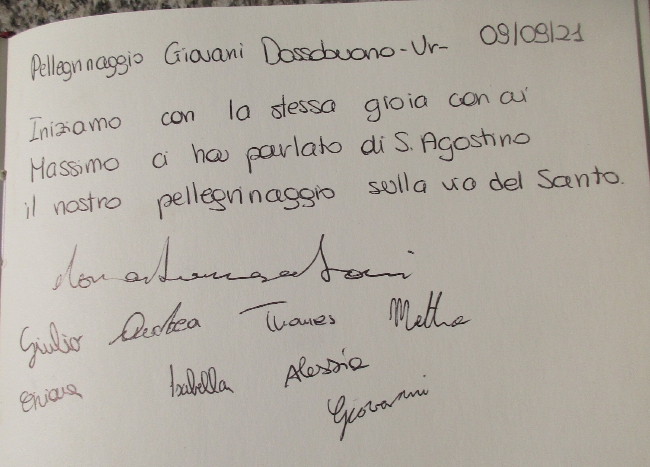 Pellegrinaggio Giovani Dossobuono - Vr - 09/09/21
Iniziamo con la stessa gioia con cui
Massimo ci ha parlato di S. Agostino
il nostro pellegrinaggio sulla via del Santo.
Giulio Andrea Mattia
Chiara Isabella Alessia
Giovanni